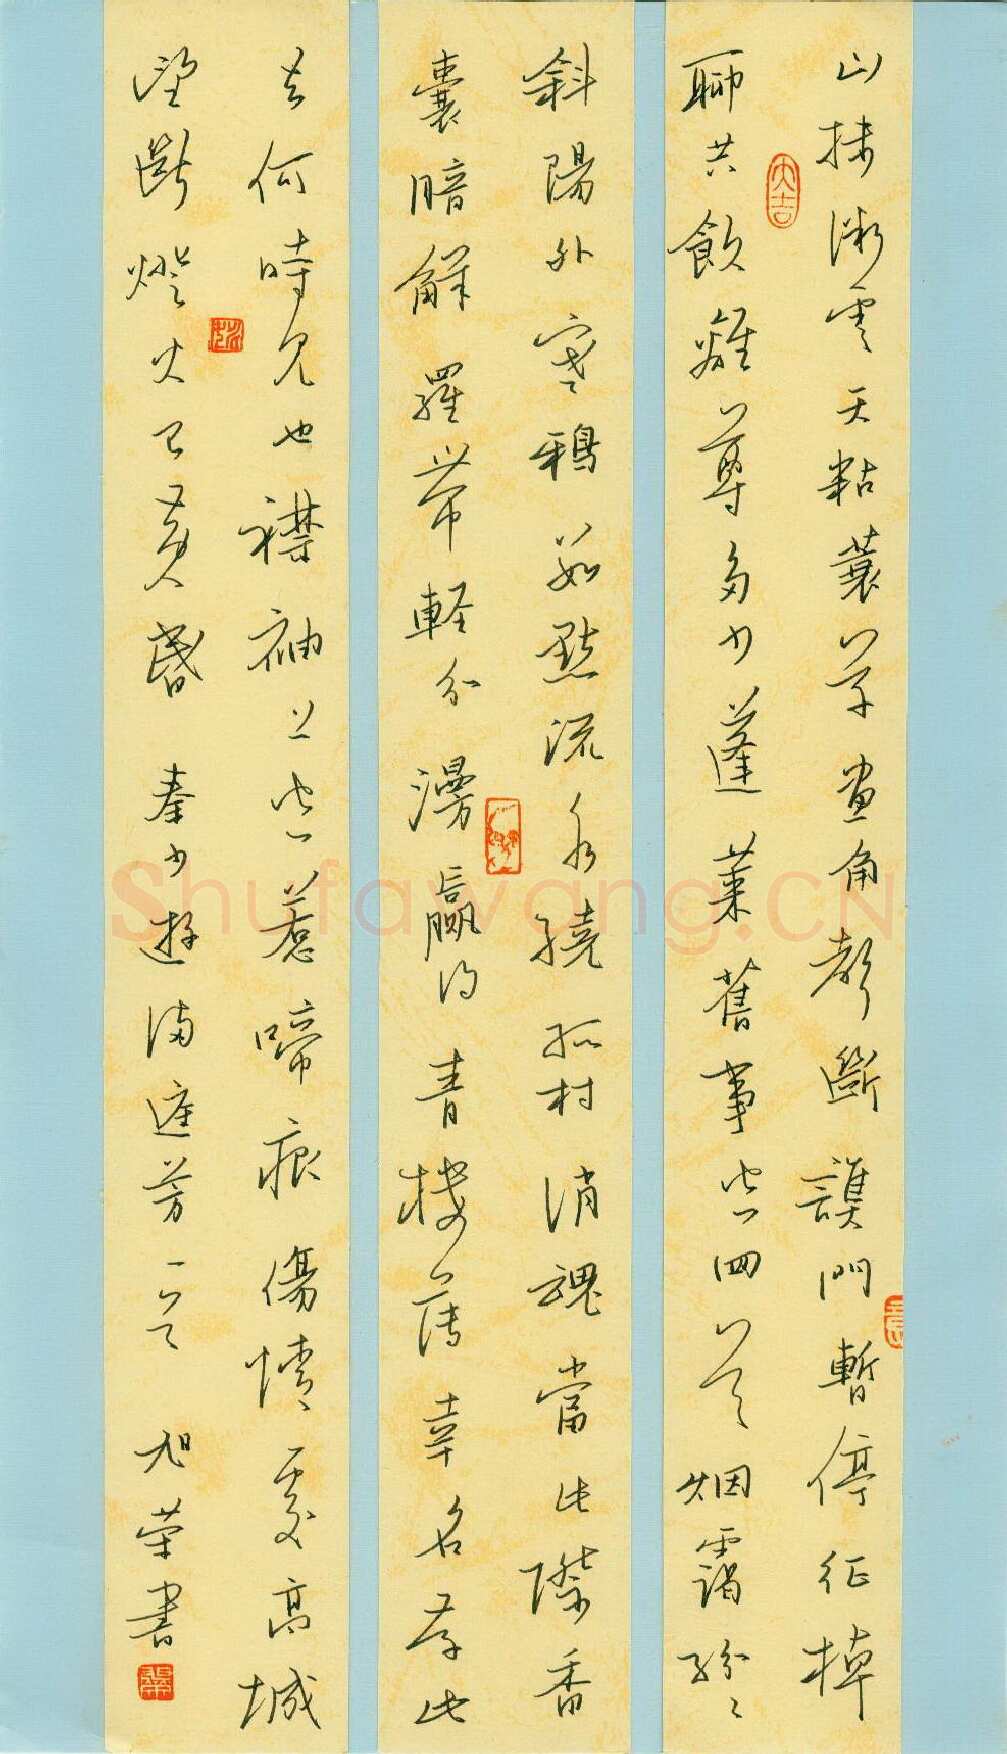 山抹微雲天粘蓑草畫角聲斷譙門暫停征棹
聊共飲離尊多少蓬萊舊事空回首烟靄紛〻
斜陽外寒鴉萬點流水繞孤村消魂當此際香
囊暗解羅帶軽分漫贏得青樓薄幸名存此
去何時見也襟袖上空惹啼痕傷情處高城
望斷燈火已黃昏 秦少遊滿庭芳一首 旭荣書
大吉
Shufawang.CN